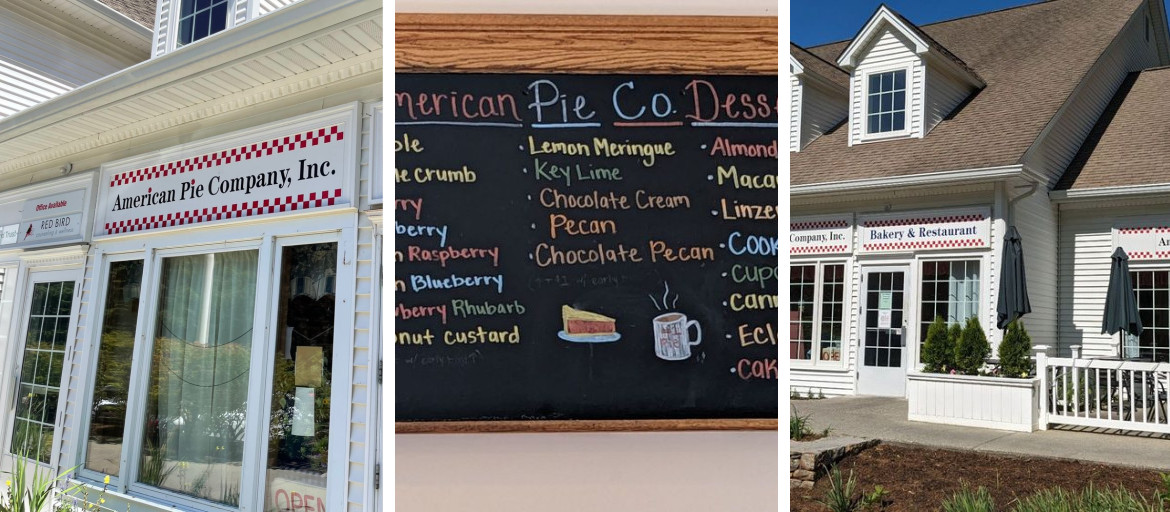 Office Available
RED BIRD
American Pie Company, Inc.
OPEN
merican Pie Co. Desse
ple
le crumb
rry
berry
n Raspberry
n Blueberry
wberry Rhubarb
onut custard
· Lemon Meringue
· Key Lime
· Chocolate Cream
Pecan
· Chocolate Pecan
· Almond
· Macar
· Linzer
· Cook
· cupc
· cann
· Ecl
· cak
Company, Inc.
Bakery & Restaurant
A
OPEN